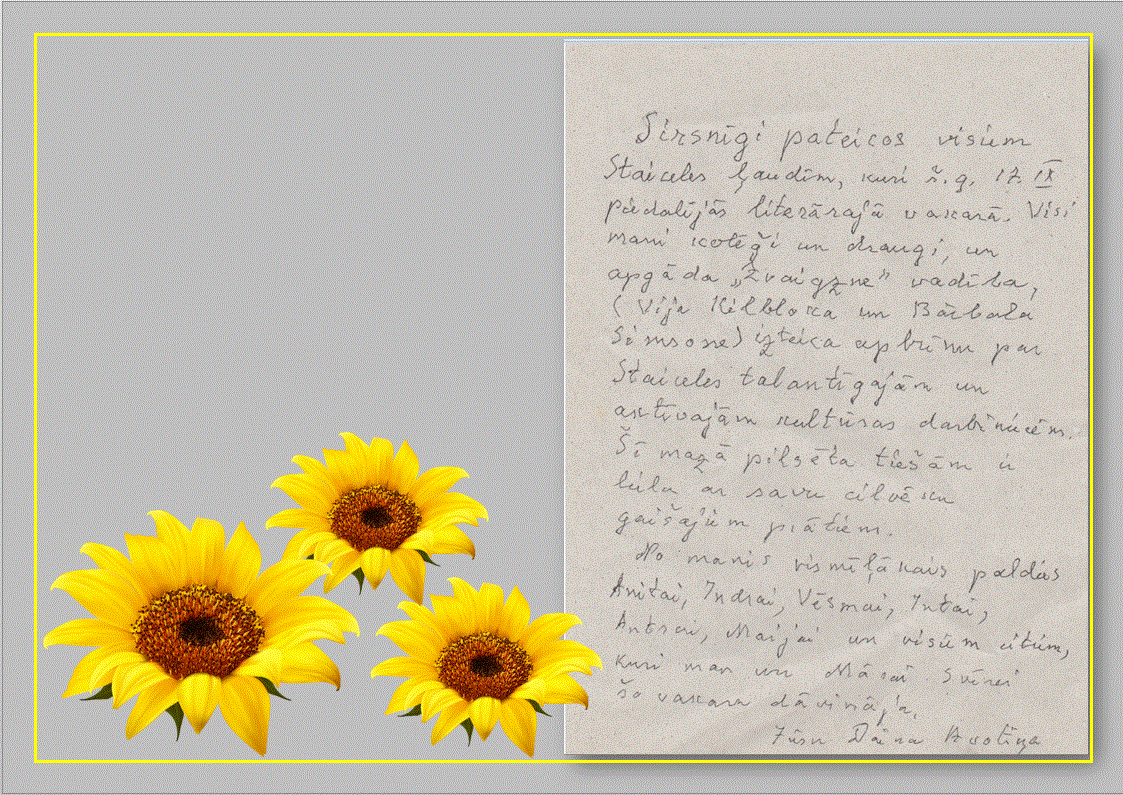 Sirsnīgi pateicos visiem
Staiceles ļaudīm, kuri š.g. 17. IX
piedalījās literārajā vakarā. Visi
mani kolēģi un draugi, un
apgāda „Zvaigzne” vadība,
(Vija Kilbloka un Bārbala
Simsone) izteica apbrīnu par
Staiceles talantīgajām un
aktīvajām kultūras darbiniecēm.
Šī mazā pilsēta tiešām ir
liela ar savu cilvēku
gaišajiem prātiem.
No manis vismīļākais paldies
Anitai, Indrai, Vēsmai, Intai,
Antrai, Maijai un visiem citiem,
kuri man un Mārai Svīrei
šo vakaru dāvināja.
Jūsu Daina Avotiņa